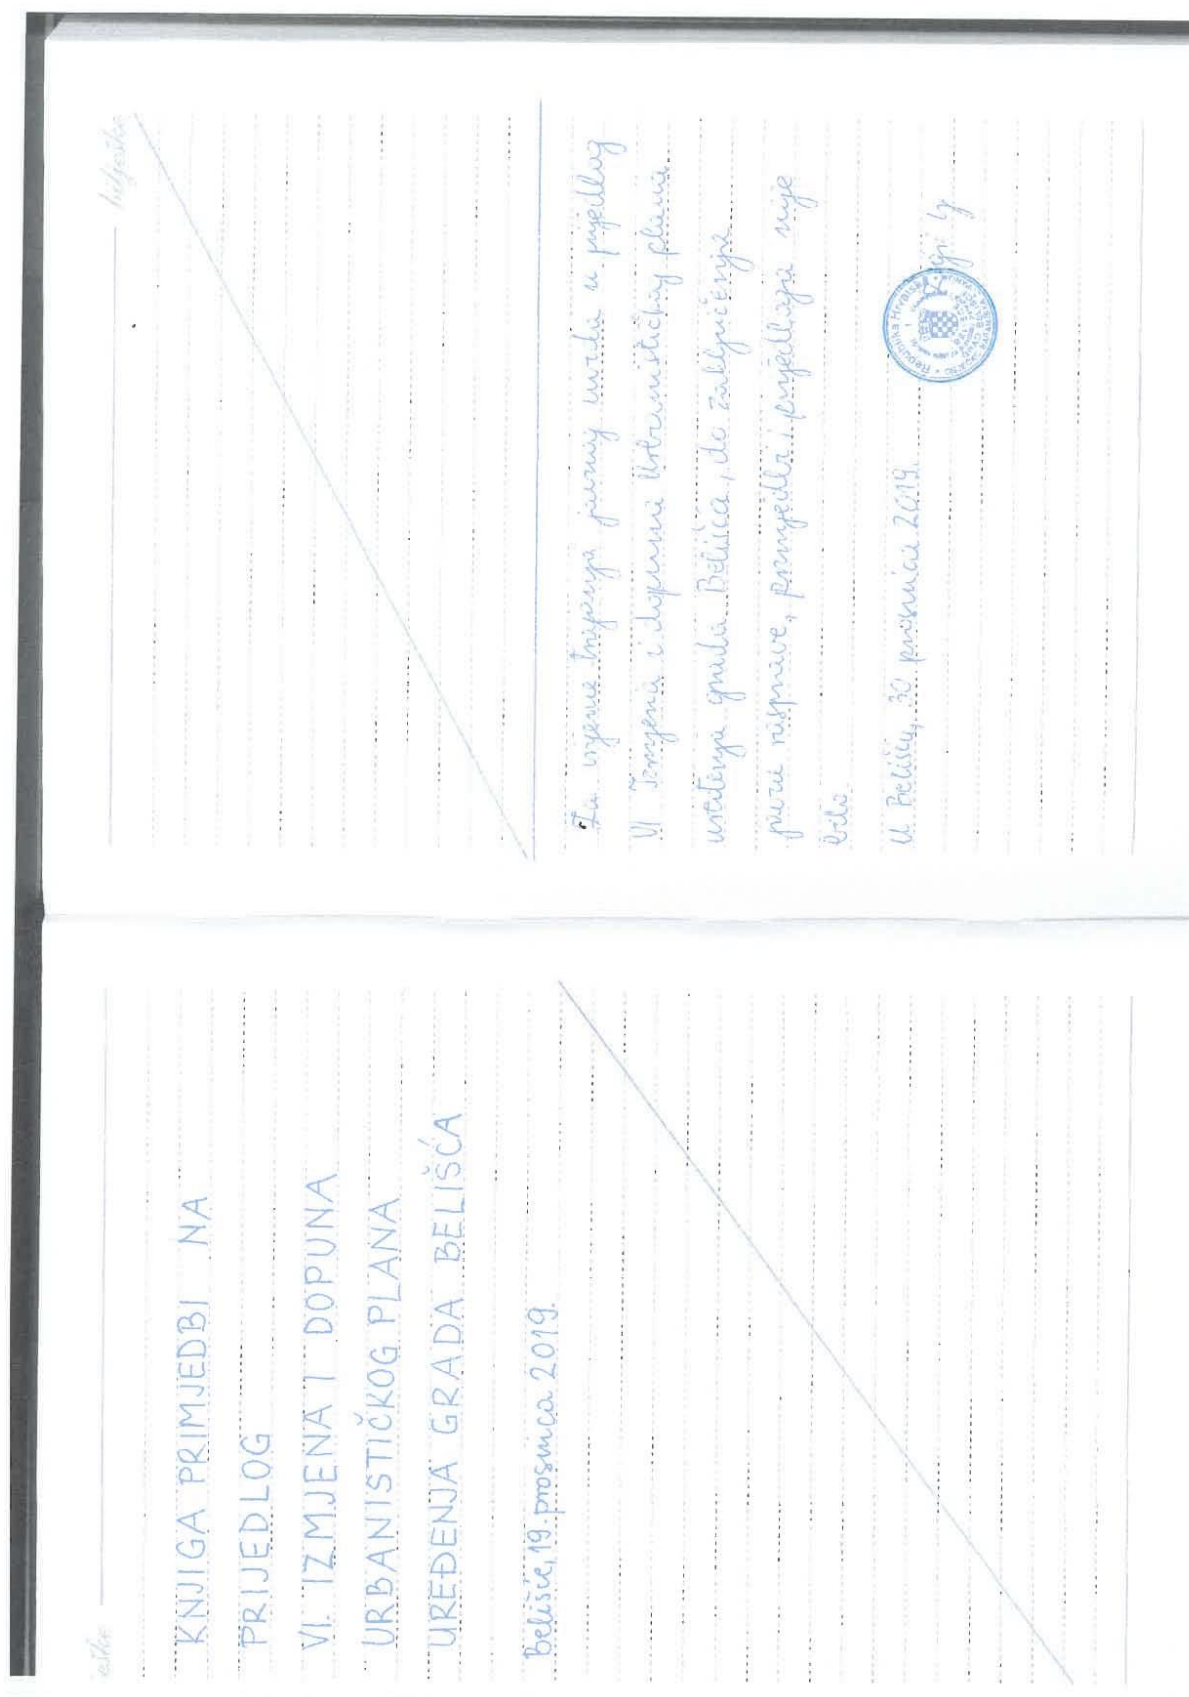 KNJIGA PRIMJEDBI NA
PRIJEDLOG
VI. IZMJENA I DOPUNA
URBANISTIČKOG PLANA
UREĐENJA GRADA BELIŠĆA
Belišće, 19. prosinca 2019.
bilješke
Za vrijeme trajanja javnog uvida u prijedlog
VI Izmjena i dopuna Urbanističkog plana
uređenja grada Belišća, do zaključenja
javne rasprave, primjedbi i prijedloga nije
bilo.
U Belišću, 30 prosinca 2019.
Republika Hrvatska